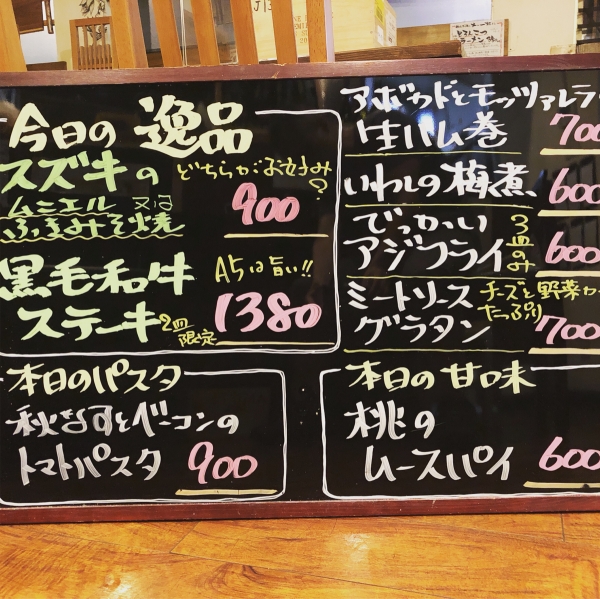 今日の 逸品
スズキの どちらがお好み?
ムニエル 又は
ふきみそ焼 900
黒毛和牛 A5は旨い!!
ステーキ 2皿限定 1380
アボカドとモッツァレラ
生ハム巻 700
いわしの梅煮 600
でっかい
アジフライ 3皿のみ 600
ミートソース チーズと野菜
グラタン たっぷり 700
本日のパスタ
秋なすとベーコンの
トマトパスタ 900
本日の甘味
桃の
ムースパイ 600